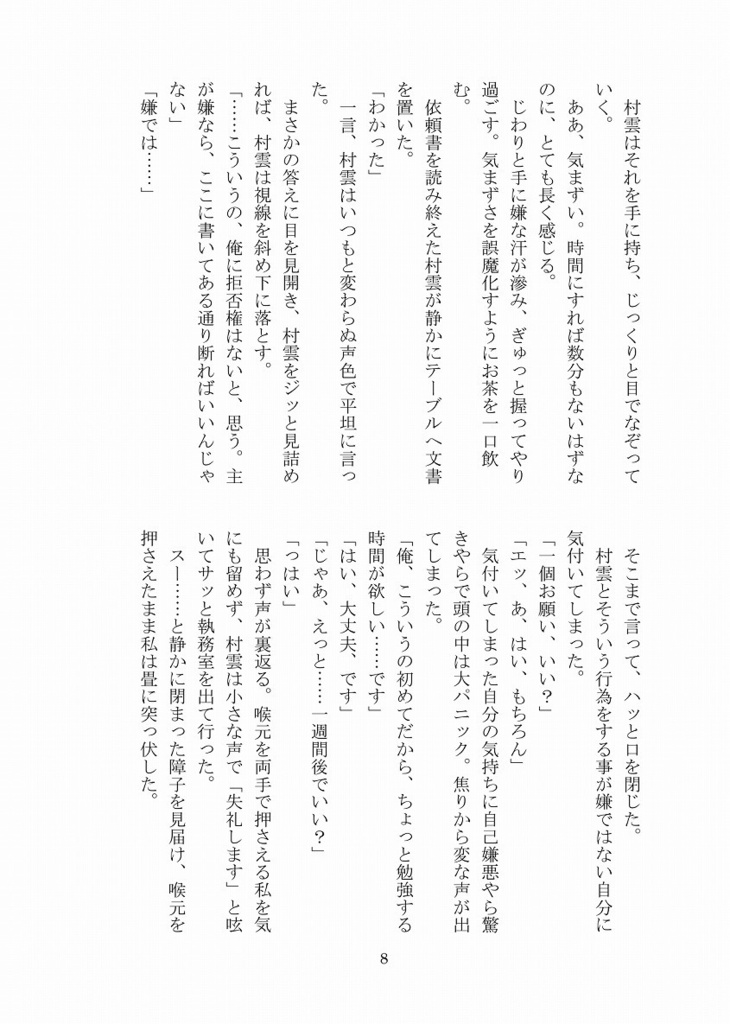 村雲はそれを手に持ち、じっくりと目でなぞって
いく。
　ああ、気まずい。時間にすれば数分もないはずな
のに、とても長く感じる。
　じわりと手に嫌な汗が滲み、ぎゅっと握ってやり
過ごす。気まずさを誤魔化すようにお茶を一口飲
む。
　依頼書を読み終えた村雲が静かにテーブルへ文書
を置いた。
「わかった」
　一言、村雲はいつもと変わらぬ声色で平坦に言っ
た。
　まさかの答えに目を見開き、村雲をジッと見詰め
れば、村雲は視線を斜め下に落とす。
「……こういうの、俺に拒否権はないと、思う。主
が嫌なら、ここに書いてある通り断ればいいんじゃ
ない」
「嫌では……」
　そこまで言って、ハッと口を閉じた。
　村雲とそういう行為をする事が嫌ではない自分に
気付いてしまった。
「一個お願い、いい？」
「エッ、あ、はい、もちろん」
　気付いてしまった自分の気持ちに自己嫌悪やら驚
きやらで頭の中は大パニック。焦りから変な声が出
てしまった。
「俺、こういうの初めてだから、ちょっと勉強する
時間が欲しい……です」
「はい、大丈夫、です」
「じゃあ、えっと……一週間後でいい？」
「っはい」
　思わず声が裏返る。喉元を両手で押さえる私を気
にも留めず、村雲は小さな声で「失礼します」と呟
いてサッと執務室を出て行った。
　スー……と静かに閉まった障子を見届け、喉元を
押さえたまま私は畳に突っ伏した。
8